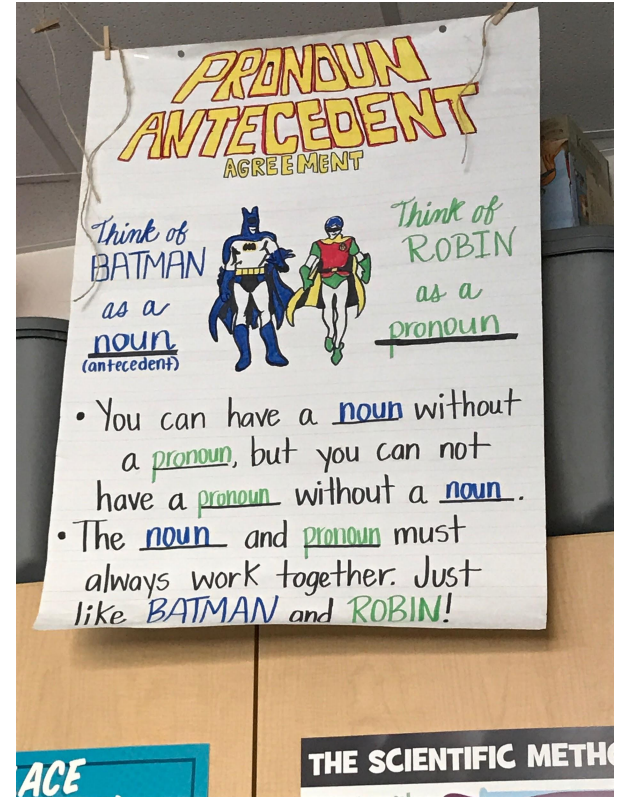 PRONOUN
ANTECEDENT
AGREEMENT
Think of
BATMAN
as a
noun
(antecedent)
Think of
ROBIN
as a
pronoun
• You can have a noun without
a pronoun, but you can not
have a pronoun without a noun.
• The noun and pronoun must
always work together. Just
like BATMAN and ROBIN!
ACE
THE SCIENTIFIC